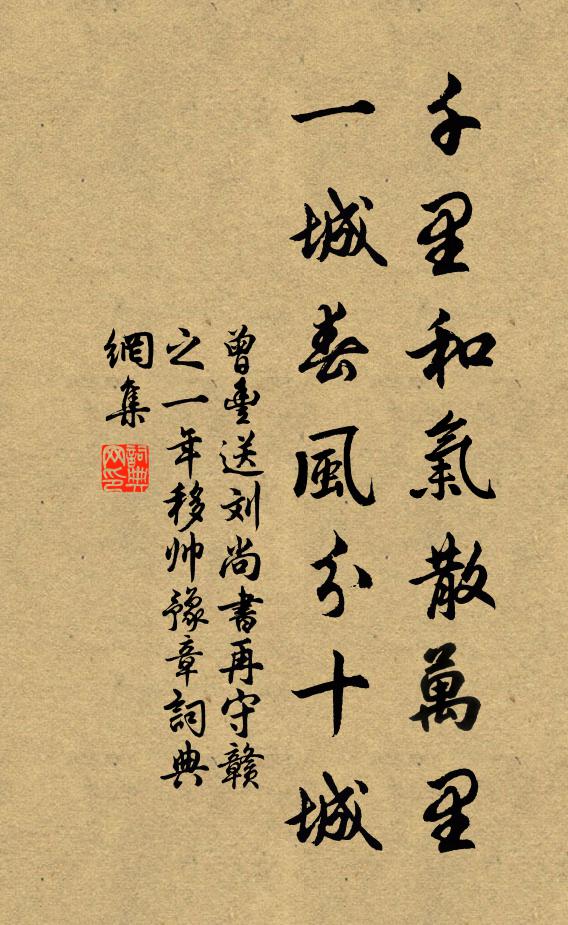 千里和氣散萬里
一城春風分十城
曾豐送刘尚書再守贛
之一年移帅豫章詞典
網集
詞典网印